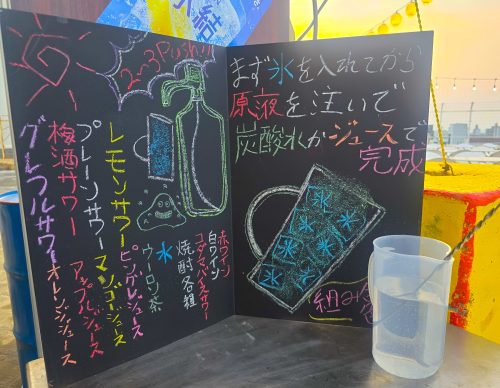 氷結
2~3Push!!
レモンサワー
プレーンサワー
梅酒サワー
グレフルサワー
ピングレジュース
マンゴージュース
アップルジュース
オレンジジュース
赤ワイン
白ワイン
焼酎各種
氷
ウーロン茶
まず氷を入れてから
原液を注いで
炭酸水かジュースで
完成
氷
氷
氷
氷
氷
氷
氷